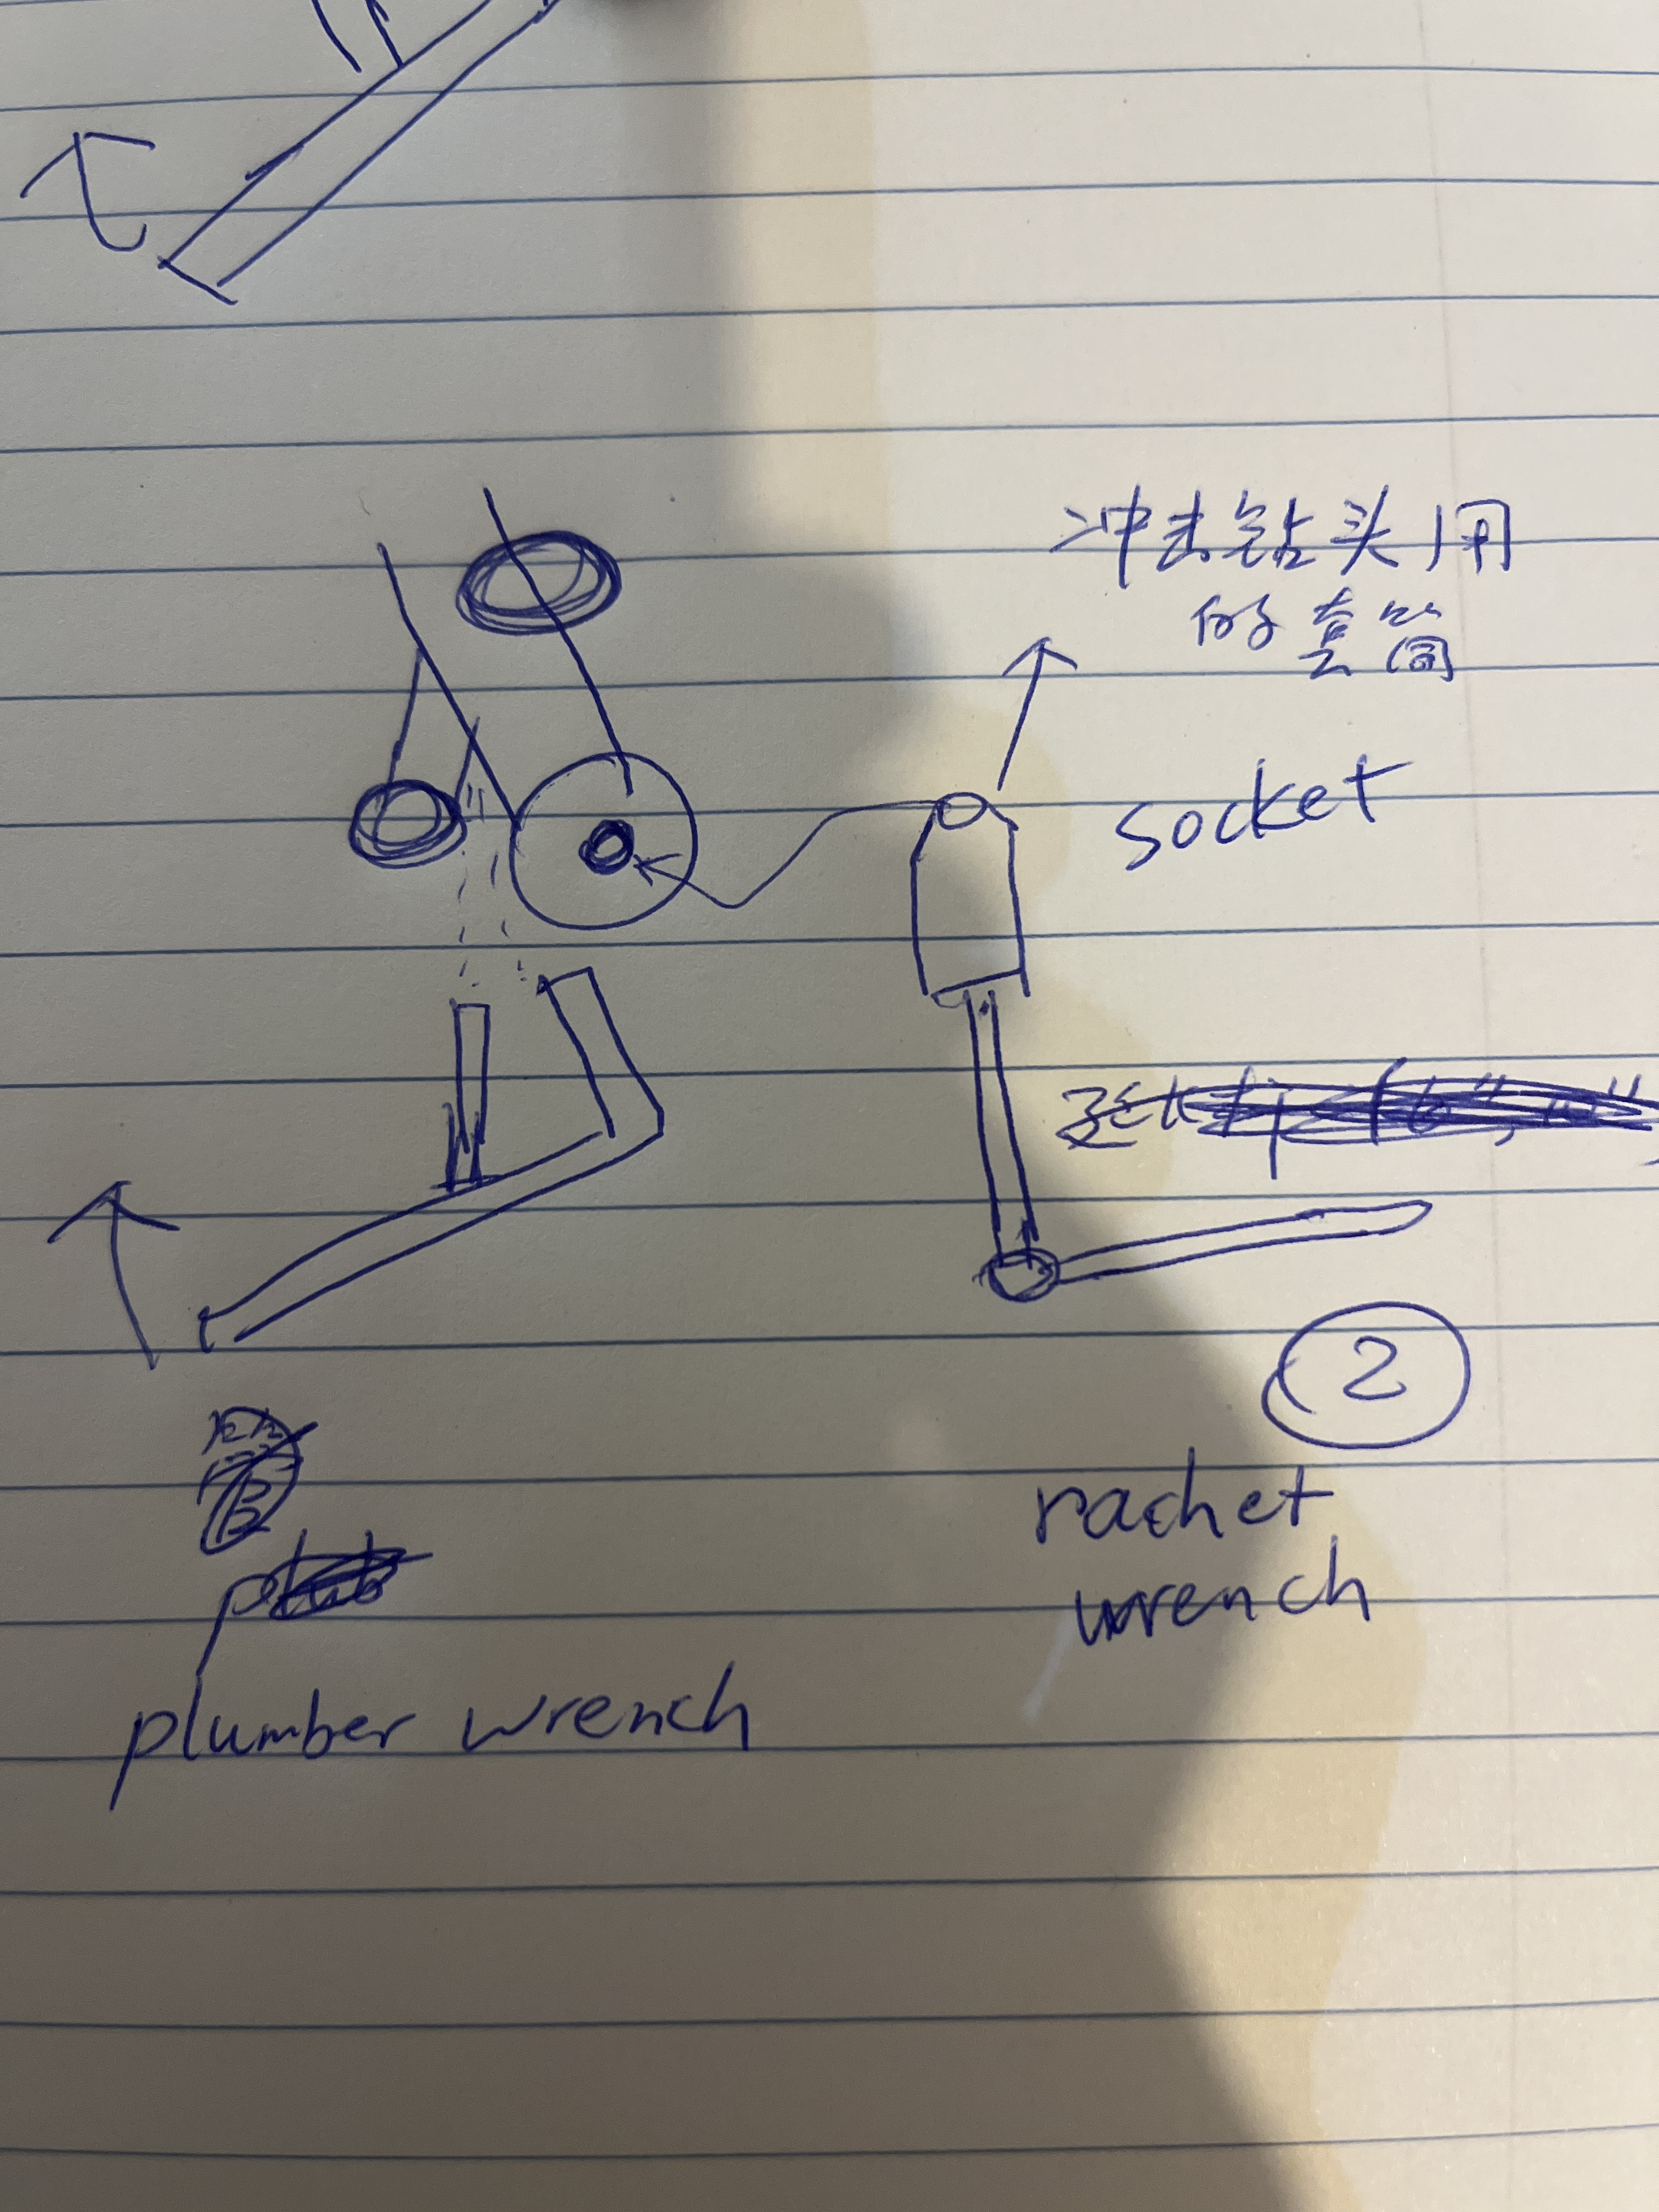 冲击钻头用
的套筒
socket
2
rachet
wrench
plumber wrench